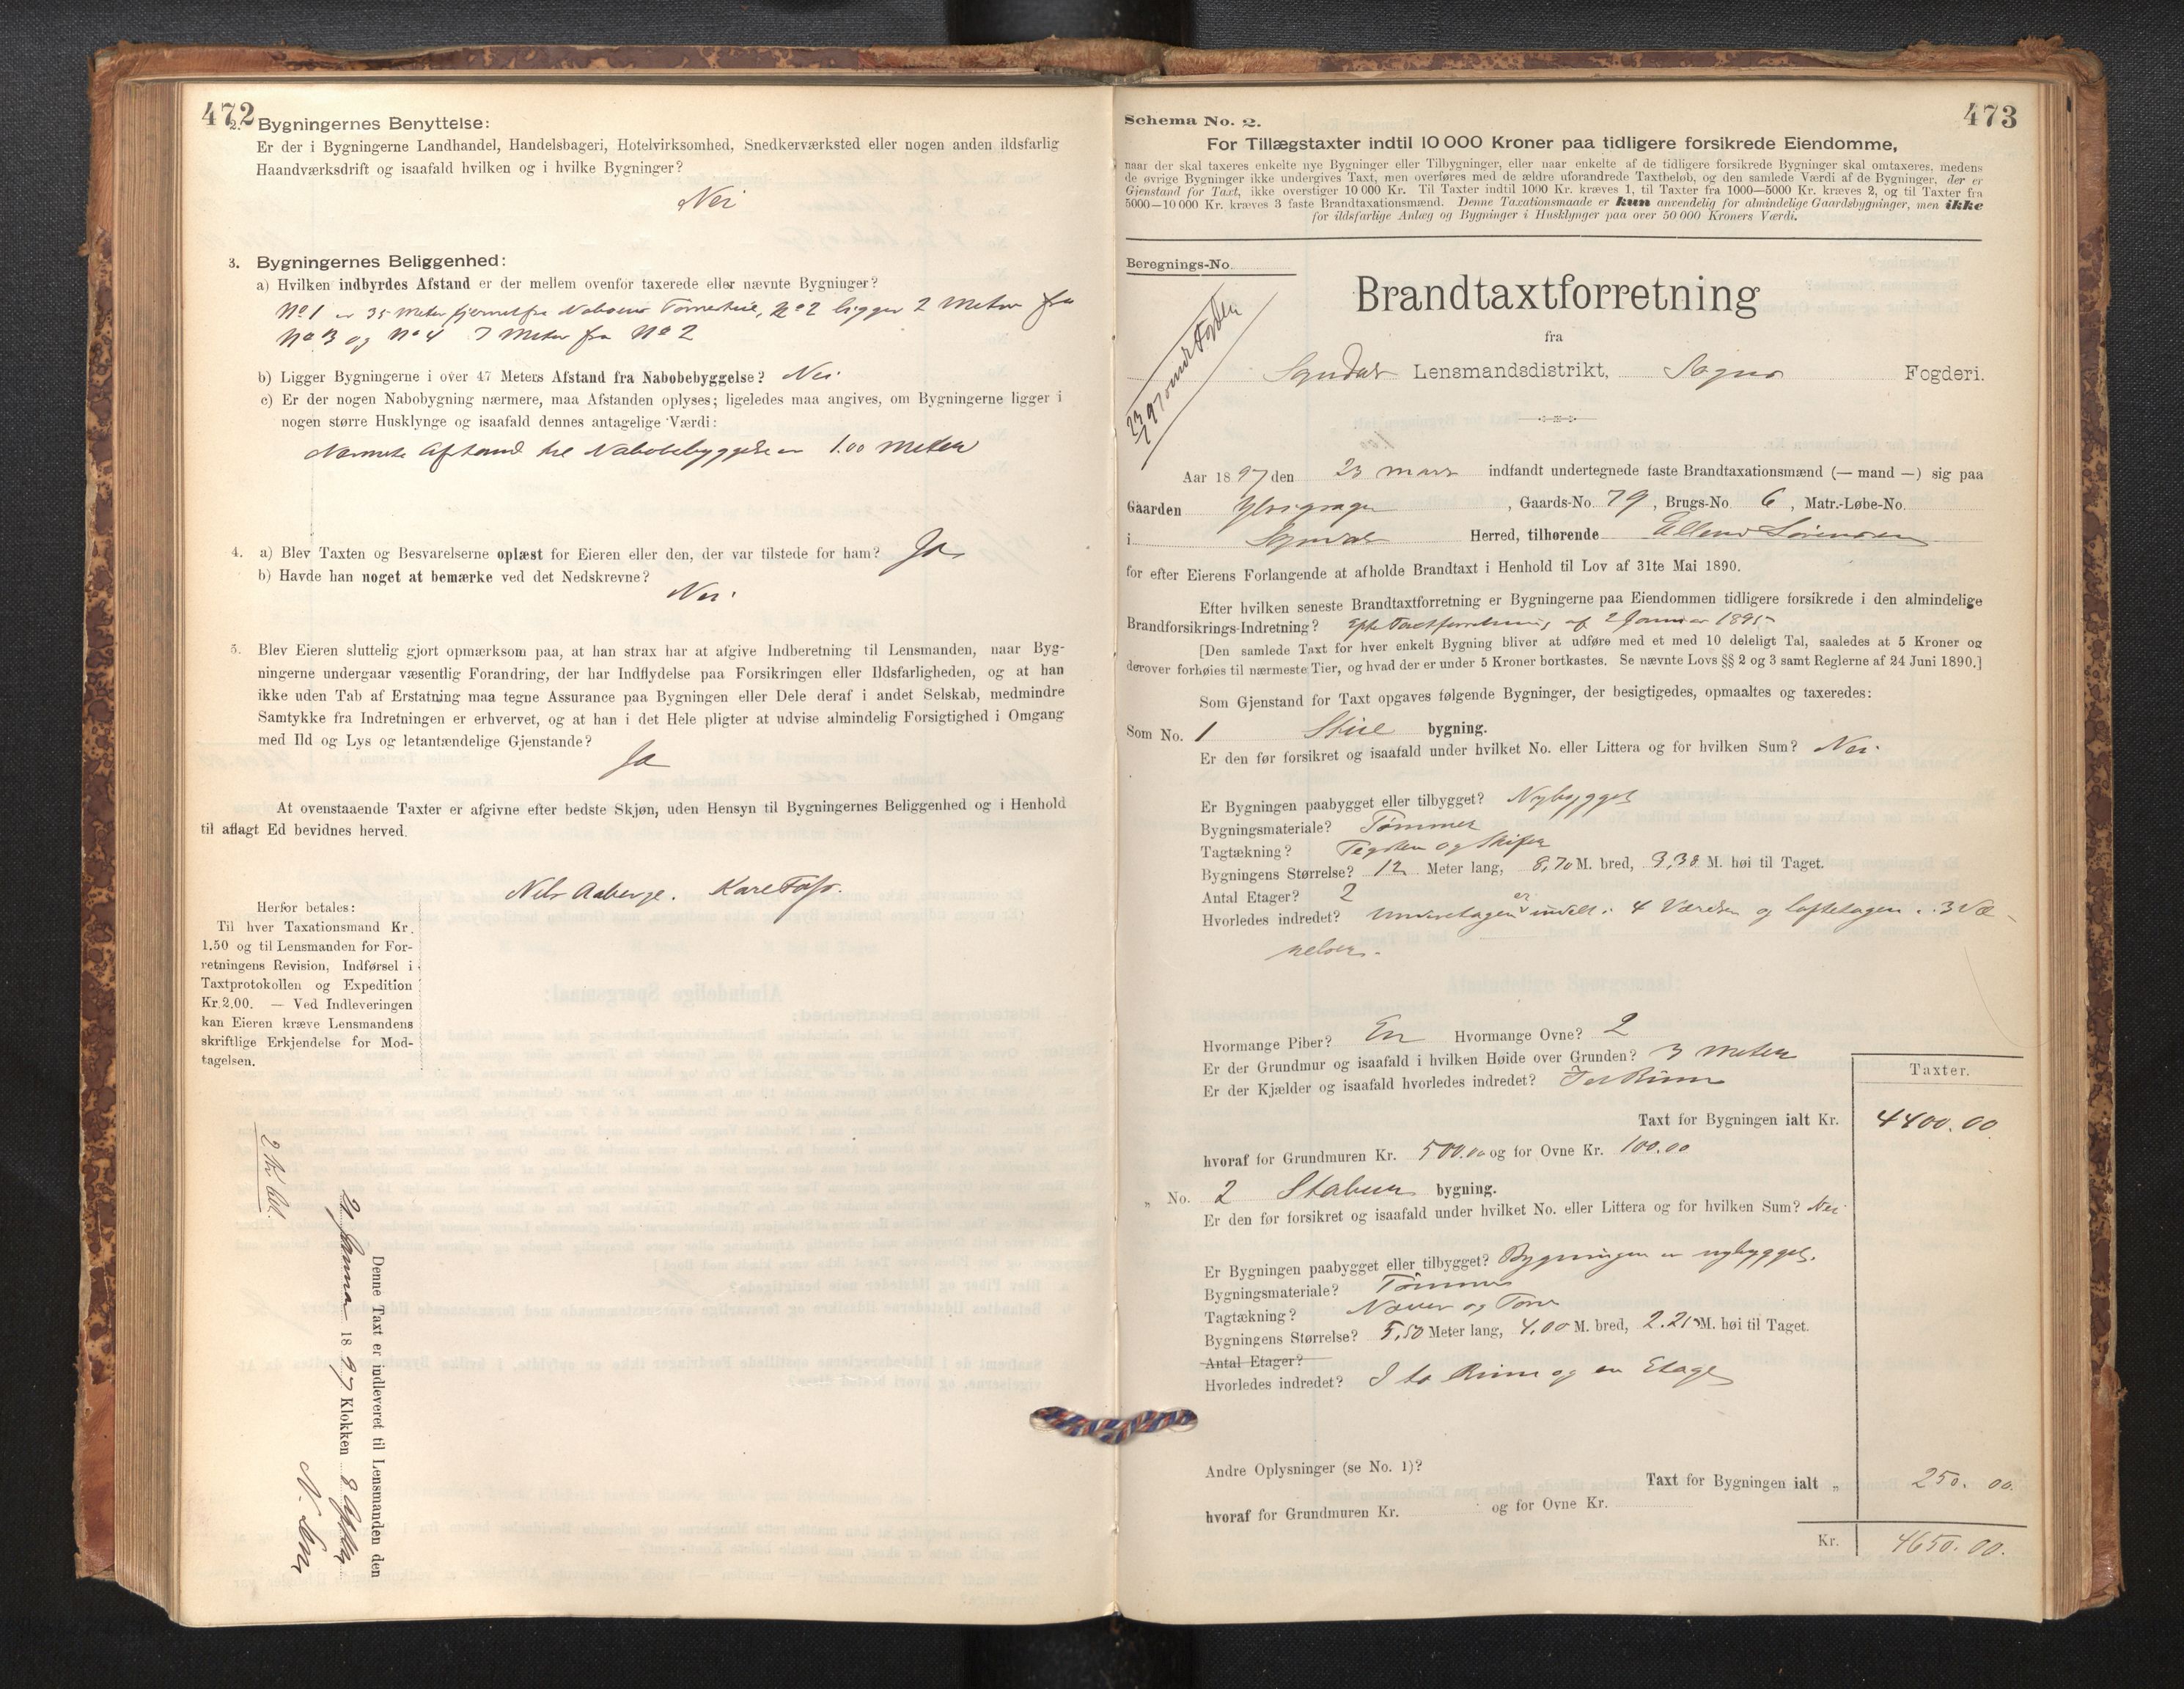 472
2. Bygningernes Benyttelse:
Er der i Bygningerne Landhandel, Handelsbageri, Hotelvirksomhed, Snedkerværksted eller nogen anden ildsfarlig
Haandværksdrift og isaafald hvilken og i hvilke Bygninger?
Nei
3. Bygningernes Beliggenhed:
a) Hvilken indbyrdes Afstand er der mellem ovenfor taxerede eller nævnte Bygninger?
No 1 er 35 Meter fjernet fra Naboens, No 2 ligger 2 Meter fra
No 3 og No 4 7 Meter fra No 2
b) Ligger Bygningerne i over 47 Meters Afstand fra Nabobebyggelse? Nei
c) Er der nogen Nabobygning nærmere, maa Afstanden oplyses; ligeledes maa angives, om Bygningerne ligger i
nogen større Husklynge og isaafald dennes antagelige Værdi:
Nærmeste Afstand til Nabobebyggelse er 1.00 Meter
4. a) Blev Taxten og Besvarelserne oplæst for Eieren eller den, der var tilstede for ham? Ja
b) Havde han noget at bemærke ved det Nedskrevne?
Nei.
5. Blev Eieren sluttelig gjort opmærksom paa, at han strax har at afgive Indberetning til Lensmanden, naar Byg-
ningerne undergaar væsentlig Forandring, der har Indflydelse paa Forsikringen eller Ildsfarligheden, og at han
ikke uden Tab af Erstatning maa tegne Assurance paa Bygningen eller Dele deraf i andet Selskab, medmindre
Samtykke fra Indretningen er erhvervet, og at han i det Hele pligter at udvise almindelig Forsigtighed i Omgang
med Ild og Lys og letantændelige Gjenstande?
Ja
At ovenstaaende Taxter er afgivne efter bedste Skjøn, uden Hensyn til Bygningernes Beliggenhed og i Henhold
til aflagt Ed bevidnes herved.
Nils Aaberge. Kare Foss.
Herfor betales:
Til hver Taxationsmand Kr.
1.50 og til Lensmanden for For-
retningens Revision, Indførsel i
Taxtprotokollen og Expedition
Kr. 2.00. — Ved Indleveringen
kan Eieren kræve Lensmandens
skriftlige Erkjendelse for Mod-
tagelsen.
2 Kr. bet.
Denne Taxt er indleveret til Lensmanden den
1897 Klokken 8 Aften
473
Schema No. 2.
For Tillægstaxter indtil 10 000 Kroner paa tidligere forsikrede Eiendomme,
naar der skal taxeres enkelte nye Bygninger eller Tilbygninger, eller naar enkelte af de tidligere forsikrede Bygninger skal omtaxeres, medens
de øvrige Bygninger ikke undergives Taxt, men overføres med de ældre uforandrede Taxtbeløb, og den samlede Værdi af de Bygninger, der er
Gjenstand for Taxt, ikke overstiger 10 000 Kr. Til Taxter indtil 1000 Kr. kræves 1, til Taxter fra 1000—5000 Kr. kræves 2, og til Taxter fra
5000—10 000 Kr. kræves 3 faste Brandtaxationsmænd. Denne Taxationsmaade er kun anvendelig for almindelige Gaardsbygninger, men ikke
for ildsfarlige Anlæg og Bygninger i Husklynger paa over 50 000 Kroners Værdi.
Beregnings-No.
Brandtaxtforretning
fra
Sogndals Lensmandsdistrikt, Sogns Fogderi.
Aar 1897 den 23 mars indfandt undertegnede faste Brandtaxationsmænd (— mand —) sig paa
Gaarden, Gaards-No. 79, Brugs-No. 6, Matr.-Løbe-No.
i Sogndals Herred, tilhørende Ellend Sørensen
for efter Eierens Forlangende at afholde Brandtaxt i Henhold til Lov af 31te Mai 1890.
Efter hvilken seneste Brandtaxtforretning er Bygningerne paa Eiendommen tidligere forsikrede i den almindelige
Brandforsikrings-Indretning? Efter Taxtforretning af 2 Januar 1895
[Den samlede Taxt for hver enkelt Bygning bliver at udføre med et med 10 deleligt Tal, saaledes at 5 Kroner og
derover forhøies til nærmeste Tier, og hvad der er under 5 Kroner bortkastes. Se nævnte Lovs §§ 2 og 3 samt Reglerne af 24 Juni 1890.]
Som Gjenstand for Taxt opgaves følgende Bygninger, der besigtigedes, opmaaltes og taxeredes:
Som No. 1 bygning.
Er den før forsikret og isaafald under hvilket No. eller Littera og for hvilken Sum? Nei.
Er Bygningen paabygget eller tilbygget? Nybygget
Bygningsmateriale? Tømmer
Tagtækning? Tegsten og Skifer
Bygningens Størrelse? 12 Meter lang, 8,70 M. bred, 3,38 M. høi til Taget.
Antal Etager? 2
Hvorledes indredet? Underetagen er inddelt i 4 Værelser og loftetagen i 3 Væ-
relser.
Hvormange Piber? En Hvormange Ovne? 2
Er der Grundmur og isaafald i hvilken Høide over Grunden? 3 meter
Er der Kjælder og isaafald hvorledes indredet? I et Rum
Taxter.
Taxt for Bygningen ialt Kr. 4400.00
hvoraf for Grundmuren Kr. 500.00 og for Ovne Kr. 100.00
„ No. 2 Stabur bygning.
Er den før forsikret og isaafald under hvilket No. eller Littera og for hvilken Sum? Nei
Er Bygningen paabygget eller tilbygget? Bygningen er nybygget.
Bygningsmateriale? Tømmer
Tagtækning? Næver og Torv
Bygningens Størrelse? 5,50 Meter lang, 4,00 M. bred, 2.25 M. høi til Taget.
Antal Etager?
Hvorledes indredet? I to Rum og en Etage
Andre Oplysninger (se No. 1)?
Taxt for Bygningen ialt „ 250.00.
hvoraf for Grundmuren Kr. og for Ovne Kr.
Kr. 4650.00.